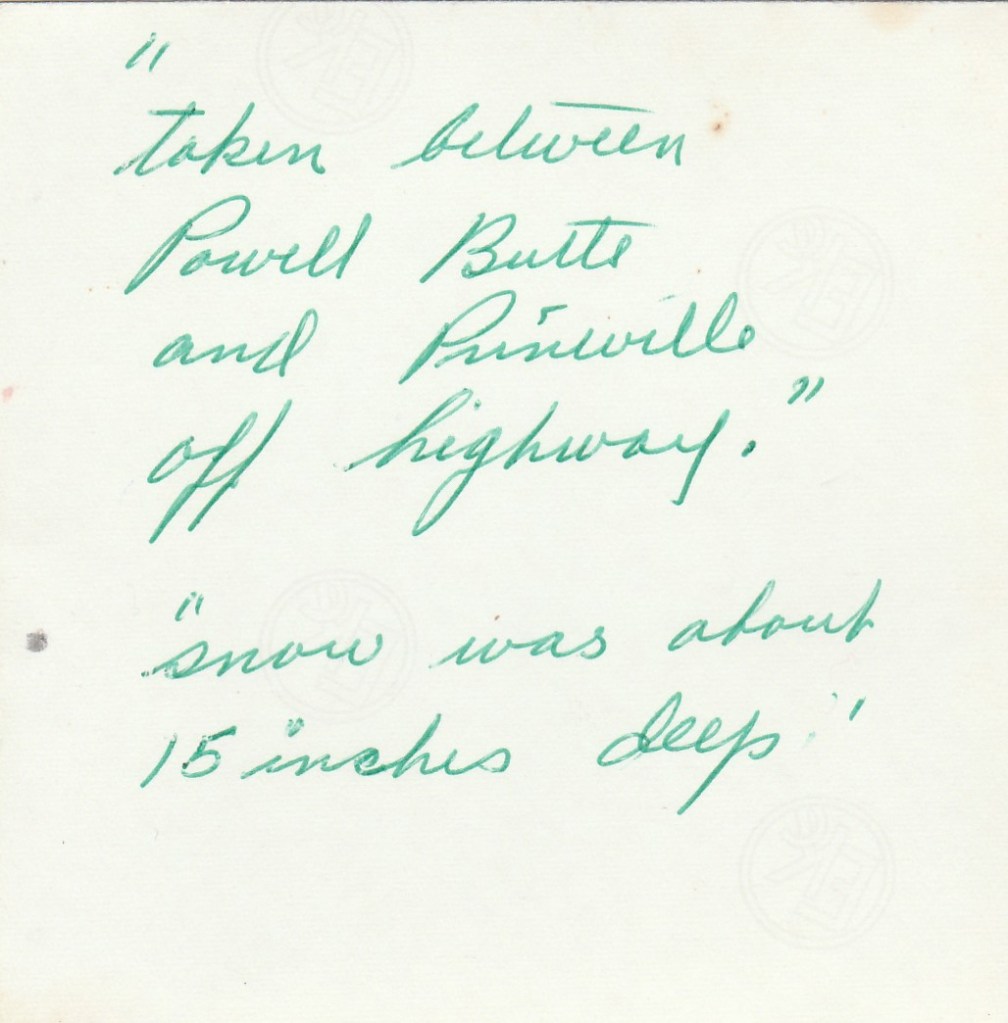 "
taken between
Powell Butte
and Prineville
off highway."
"snow was about
15 inches deep"